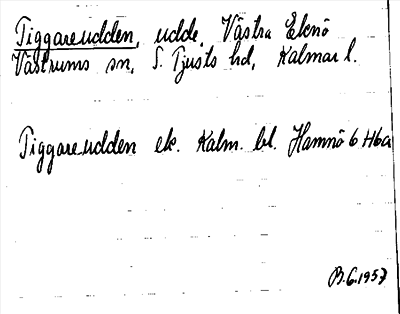 Tiggareudden, udde, Västra Eknö
Västrums sn, S. Tjusts hd, Kalmar l.
Tiggareudden ek. Kalm. bl. Hamnö 6 H6a
B.G. 1957